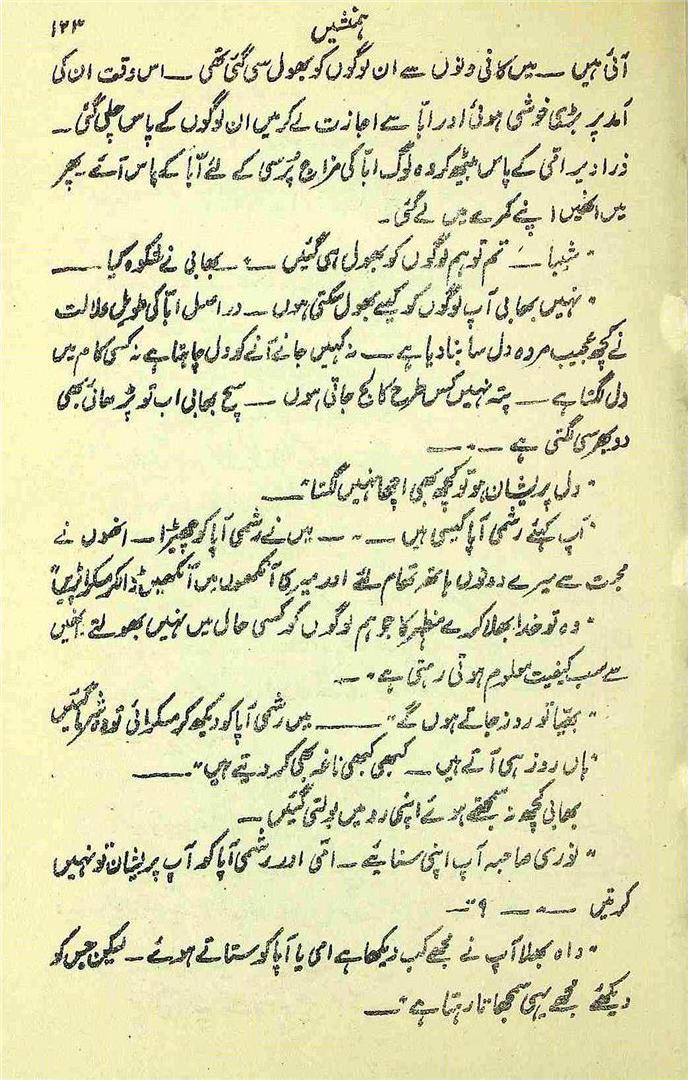 ہمنشیں ۱۲۳
آئی ہیں ــ میں کافی دنوں سے ان لوگوں کو بھول سی گئی تھی ــ اس وقت ان کی
آمد پر بڑی خوشی ہوئی اور ابّا سے اجازت لے کر میں ان لوگوں کے پاس چلی گئی ــ
ذرا دیر امّی کے پاس بیٹھ کر وہ لوگ ابّا کی مزاج پُرسی کے لئے ابّا کے پاس آئے ــ پھر
میں انھیں اپنے کمرے میں لے گئی ــ
" شِبا ــ تم تو ہم لوگوں کو بھول ہی گئیں ــ " ــ بھابی نے شکوہ کیا ــ
" نہیں بھابی آپ لوگوں کو کیسے بھول سکتی ہوں ــ دراصل ابّا کی طویل علالت
نے کچھ عجیب مردہ دل سا بنا دیا ہے ــ نہ کہیں جانے آنے کو دل چاہتا ہے نہ کسی کام میں
دل لگتا ہے ــ پتہ نہیں کس طرح کالج جاتی ہوں ــ سچ بھابی اب تو پڑھائی بھی
دوبھر سی لگتی ہے ــ " ــ
" دل پریشان ہو تو کچھ بھی اچھا نہیں لگتا " ــ
" آپ کہئے رشمی آپا کیسی ہیں ــ " ــ میں نے رشمی آپا کو چھیڑا ــ انھوں نے
محبت سے میرے دونوں ہاتھ تھام لئے اور میری آنکھوں میں آنکھیں ڈال کر مسکرا پڑیں "
" وہ تو خدا بھلا کرے مظہر کا جو ہم لوگوں کو کسی حال میں نہیں بھولتے انھیں
سے سب کیفیت معلوم ہوتی رہتی ہے " ــ
" بھیّا تو روز جاتے ہوں گے " ــ میں رشمی آپا کو دیکھ کر مسکرائی تو وہ شرما گئیں
" ہاں روز ہی آتے ہیں ــ کبھی کبھی ناغہ بھی کر دیتے ہیں " ــ
بھابی کچھ نہ سمجھتے ہوئے اپنی رو میں بولتی گئیں ــ
" نوری صاحبہ آپ اپنی سنائیے ــ امّی اور رشمی آپا کو آپ پریشان تو نہیں
کرتیں ــ " ــ ؟ " ــ
" واہ بھلا آپ نے مجھے کب دیکھا ہے امی یا آپا کو ستاتے ہوئے ــ لیکن جس کو
دیکھئے مجھے یہی سمجھاتا رہتا ہے " ــ